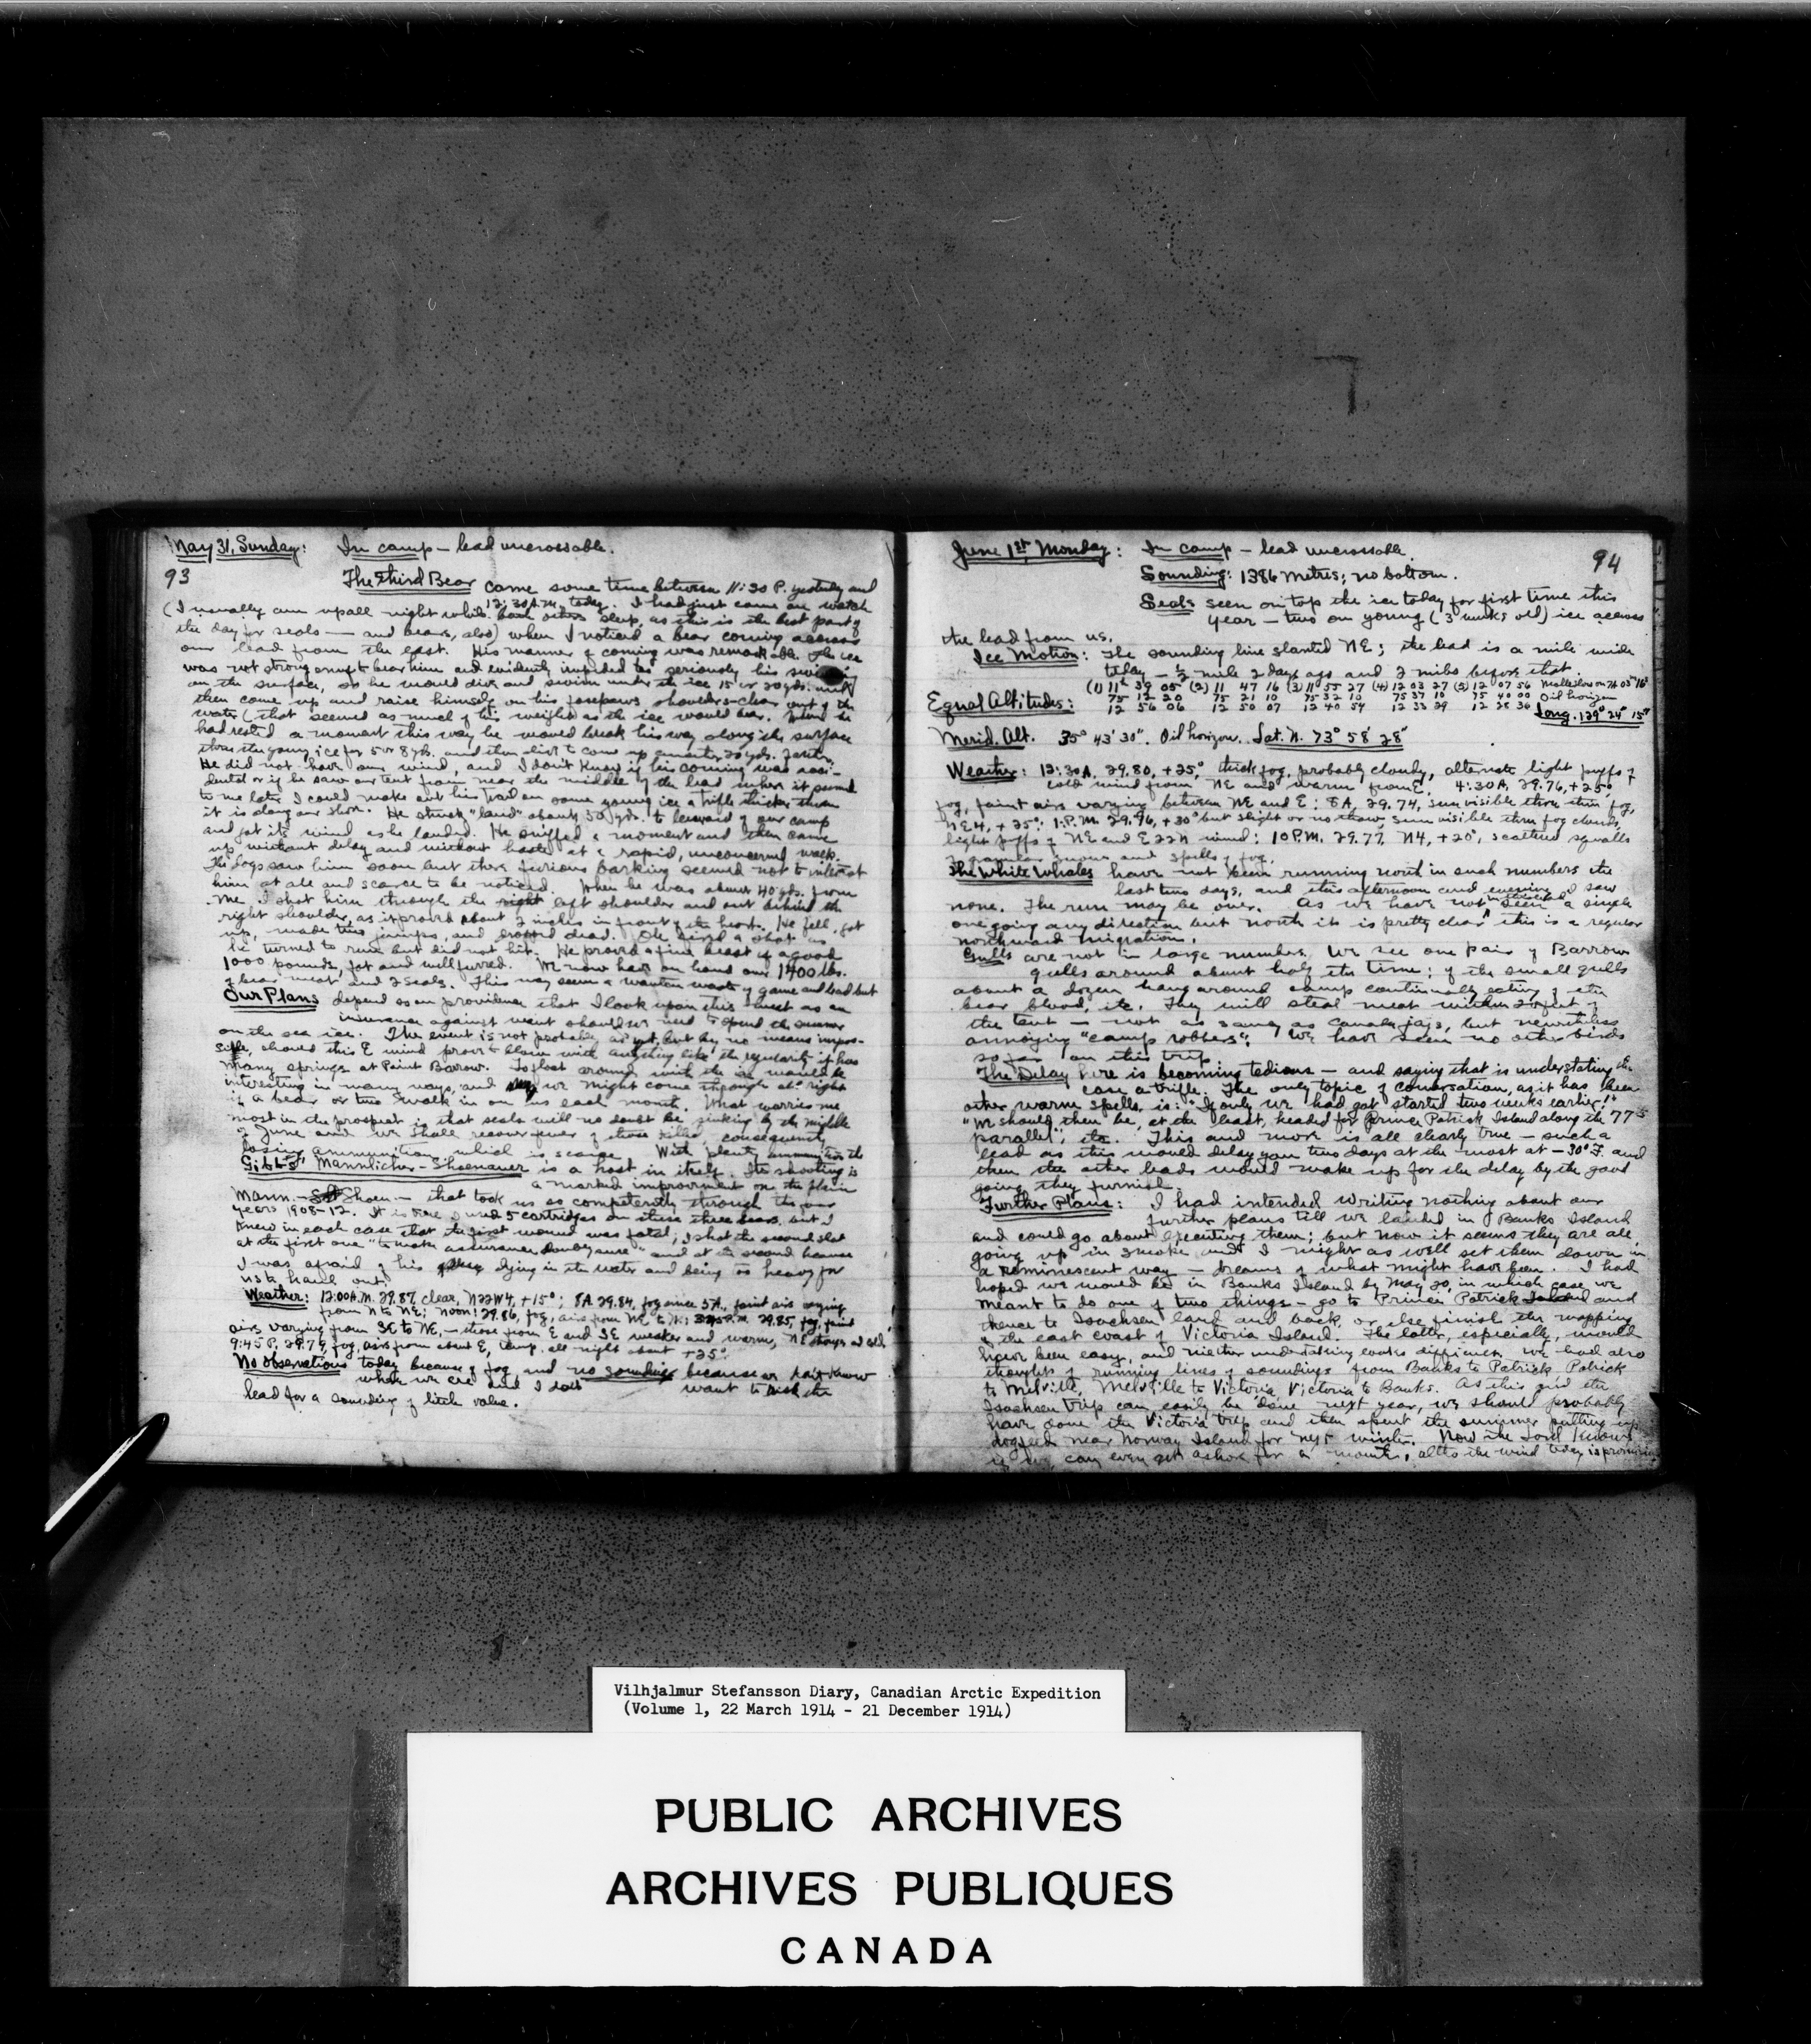 May 31, Sunday: In camp – lead uncrossable.
93
The Third Bear came some time between 11:30 P. yesterday and
12:30 A.M. today. I had just come on watch
(I usually am up all night while both others sleep, as this is the best part of
the day for seals — and bears, also) when I noticed a bear coming across
our lead from the east. His manner of coming was remarkable. The ice
was not strong enough to bear him and evidently impeded too seriously his swimming
on the surface, so he would dive and swim under the ice 15 or 20 yds. and
then come up and raise himself on his forepaws shoulders-clear out of the
water (that seemed as much of his weight as the ice would bear. When he
had rested a moment this way he would break his way along the surface
thru the young ice for 5 or 8 yds. and then dive to come up another 20 yds. farther.
He did not have our wind, and I don't know if his coming was acci-
dental or if he saw our tent from near the middle of the lead where it seemed
to me later I could make out his trail on some young ice a trifle thicker than
it is along our shore. He struck "land" about 50 yds. to leeward of our camp
and got its wind as he landed. He sniffed a moment and then came
up without delay and without haste at a rapid, unconcerned walk.
The dogs saw him soon but their furious barking seemed not to interest
him at all and scarce to be noticed. When he was about 40 yds. from
me I shot him through the left shoulder and out behind the
right shoulder, as it proved about 2 inches in front of the heart. He fell, got
up, made two jumps, and dropped dead. Ole fired a shot as
he turned to run but did not hit. He proved a fine beast of a good
1000 pounds, fat and well furred. We now have on hand over 1400 lbs.
of bear meat and 2 seals. This may seem a wanton waste of game and lead but
Our Plans depend so on providence that I look upon this meat as an
insurance against want should we need to spend the summer
on the sea ice. The event is not probable as yet, but by no means impos-
sible, should this E wind prove to blow with anything like the regularity it has
many springs at Point Barrow. To float around with the ice would be
interesting in many ways, and we might come through all right
if a bear or two walk in on us each month. What worries me
most in the prospect is that seals will no doubt be sinking by the middle
of June and we shall recover fewer of those killed, consequently
losing ammunition, which is scarce. With plenty ammunition the
Gibbs' Mannlicher-Shoenauer is a host in itself. Its shooting is
a marked improvement on the plain
Mann.-Shoen – that took us so competently through the four
years 1908-12. It is true I used 5 cartridges on these three bears, but I
knew in each case that the first wound was fatal; I shot the second shot
at the first one "to make assurance doubly sure" and at the second because
I was afraid of his dying in the water and being too heavy for
us to haul out.
Weather: 12:00 A.M. 29.87, clear, N22W4, +15°; 8A. 29.84, fog since 5A., faint airs varying
from N to NE; noon: 29.86, fog, airs from NE to N; P.M. 29.85, fog, faint
airs varying from SE to NE, – those from E and SE weaker and warm, NE stronger and cold
9:45 P. 29.79, fog, airs from about E, temp. all night about +25°.
No observations today because of fog and no soundings because we don't know
where we are and I don't want to risk the
lead for a sounding of little value.
June 1st, Monday: In camp – lead uncrossable. 94
Sounding: 1386 metres; no bottom.
Seals seen on top the ice today for first time this
year – two on young (3 weeks old) ice across
the lead from us.
Ice Motion: The sounding line slanted NE; the lead is a mile wide
today – ½ mile 2 days ago and 2 miles before that.
(1) 11 39 05 (2) 11 47 16 (3) 11 55 27 (4) 12 03 27 (5) 12 07 56
Equal Altitudes: 75 20 75 21 10 75 32 10 75 37 10 75 40 00 Oil horizon
12 56 06 12 50 07 12 40 54 12 33 29 12 28 36 Long. 129° 24' 15"
Merid. Alt. 35° 43' 30". Oil horizon. Lat. N. 73° 58' 28"
Weather: 12:30A, 29.80, +25°, thick fog, probably cloudy, alternate light puffs of
cold wind from NE and warm from E. 4:30A, 29.76, +25°,
fog, faint airs varying between NE and E; 8A, 29.74, sun visible thru thin fog,
NE4, +25°; 1:P.M. 29.76, +30° but slight or no thaw, sun visible thru fog clouds,
light puffs of NE and E22N wind; 10P.M. 29.77, N4, +20°, scattered squalls
of granular snow and spells of fog.
The White Whales have not been running north in such numbers the
last two days, and this afternoon and evening I saw
none. The run may be over. As we have not seen a single
one going any direction but north it is pretty clear this is a regular
northward migration.
Gulls are not in large numbers. We see one pair of Barrow
gulls around about half the time; of the small gulls
about a dozen hang around camp continually eating of the
bear blood, etc. They will steal meat within 20 feet of
the tent — not as saucy as Canada jays, but nevertheless
annoying "camp robbers". We have seen no other birds
so far on this trip.
The Delay here is becoming tedious – and saying that is understating the
case a trifle. The only topic of conversation, as it has been
other warm spells, is: "If only we had got started two weeks earlier!"
"We should then be, at the least, headed for Prince Patrick Island along the 77th
parallel", etc. This and more is all clearly true – such a
lead as this would delay you two days at the most at –30° F. and
then the other leads would make up for the delay by the good
going they furnish.
Further Plans: I had intended writing nothing about our
further plans till we landed in Banks Island
and could go about executing them; but now it seems they are all
going up in smoke and I might as well set them down in
a reminescent way – dreams of what might have been. I had
hoped we would be in Banks Island by May 20, in which case we
meant to do one of two things – go to Prince Patrick Island and
thence to Isachsen land and back, or else finish the mapping
of the east coast of Victoria Island. The latter, especially, would
have been easy, and neither undertaking looks difficult. We had also
thoughts of running lines of soundings from Banks to Patrick, Patrick
to Melville, Melville to Victoria, Victoria to Banks. As this and the
Isachsen trip can easily be done next year, we should probably
have done the Victoria trip and then spent the summer putting up
dogfeed near Norway Island for next winter. Now the Lord knows
if we can even get ashore for a month, altho the wind today is promising
Vilhjalmur Stefansson Diary, Canadian Arctic Expedition
(Volume 1, 22 March 1914 - 21 December 1914)
PUBLIC ARCHIVES
ARCHIVES PUBLIQUES
CANADA